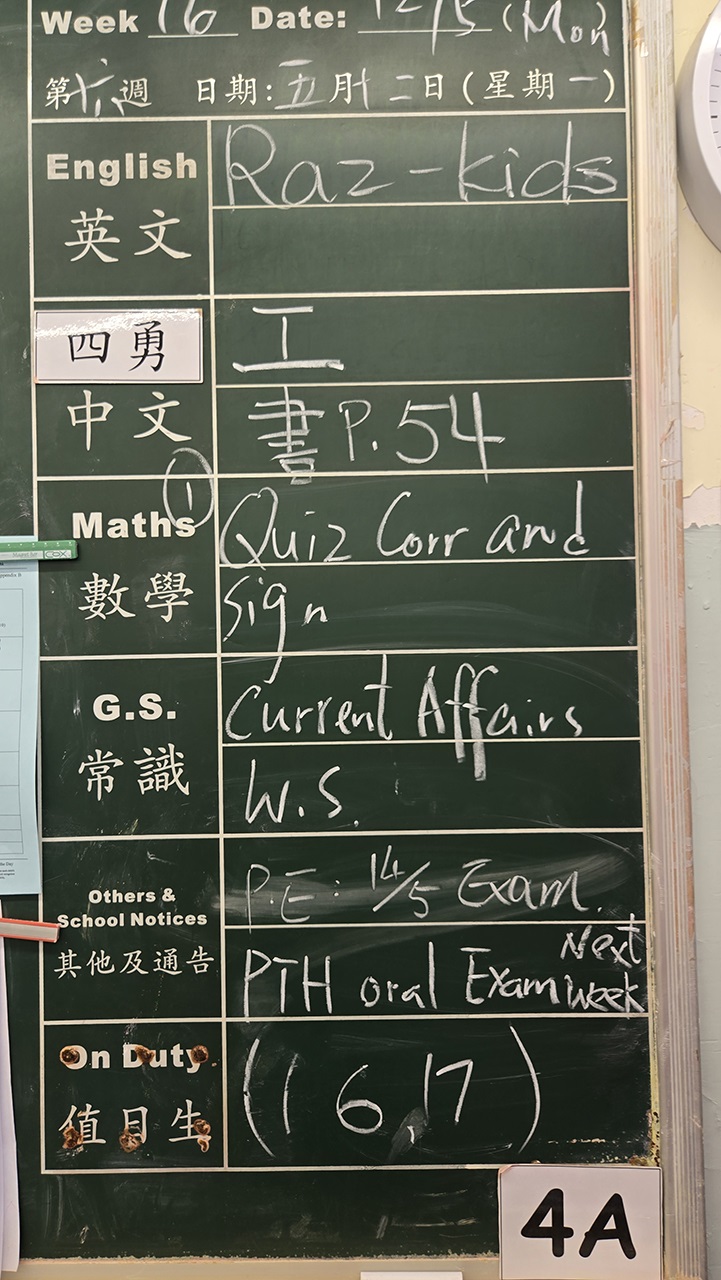 Week 16 Date: 12/5 (Mon)
第十六週 日期: 五月十二日 (星期一)
English Raz-kids
英文
四勇 工
中文 書 P. 54
①
Maths Quiz Corr and
數學 sign
G.S. Current Affairs
常識 W.S.
Others & P.E: 14/5 Exam.
School Notices
其他及通告 PTH oral Exam Next week
On Duty (16,17)
值日生
4A